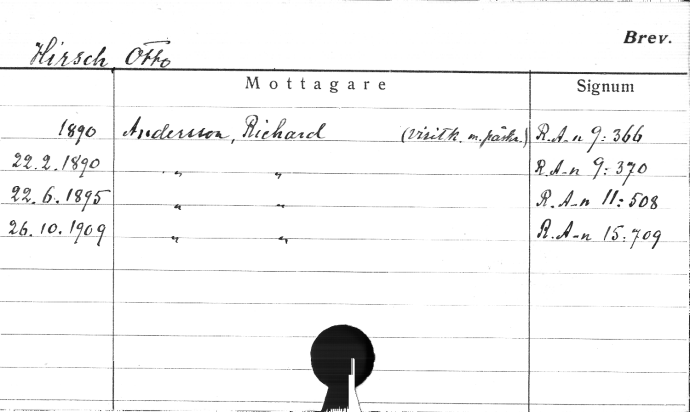 Brev.
Hirsch, Otto
Mottagare Signum
1890 Andersson, Richard (visitk. m. påskr.) R.A-n 9:366
22.2.1890 " " R.A-n 9:370
22.6.1895 " " R.A-n 11:508
26.10.1909 " " R.A-n 15:709